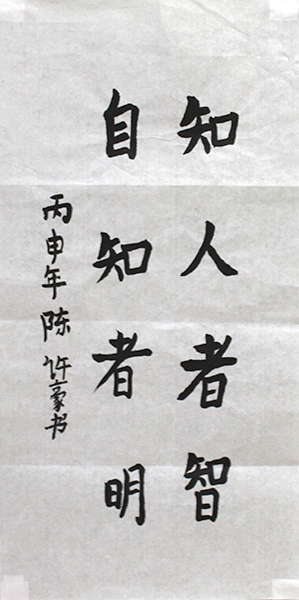 知人者智
自知者明
丙申年陈许豪书